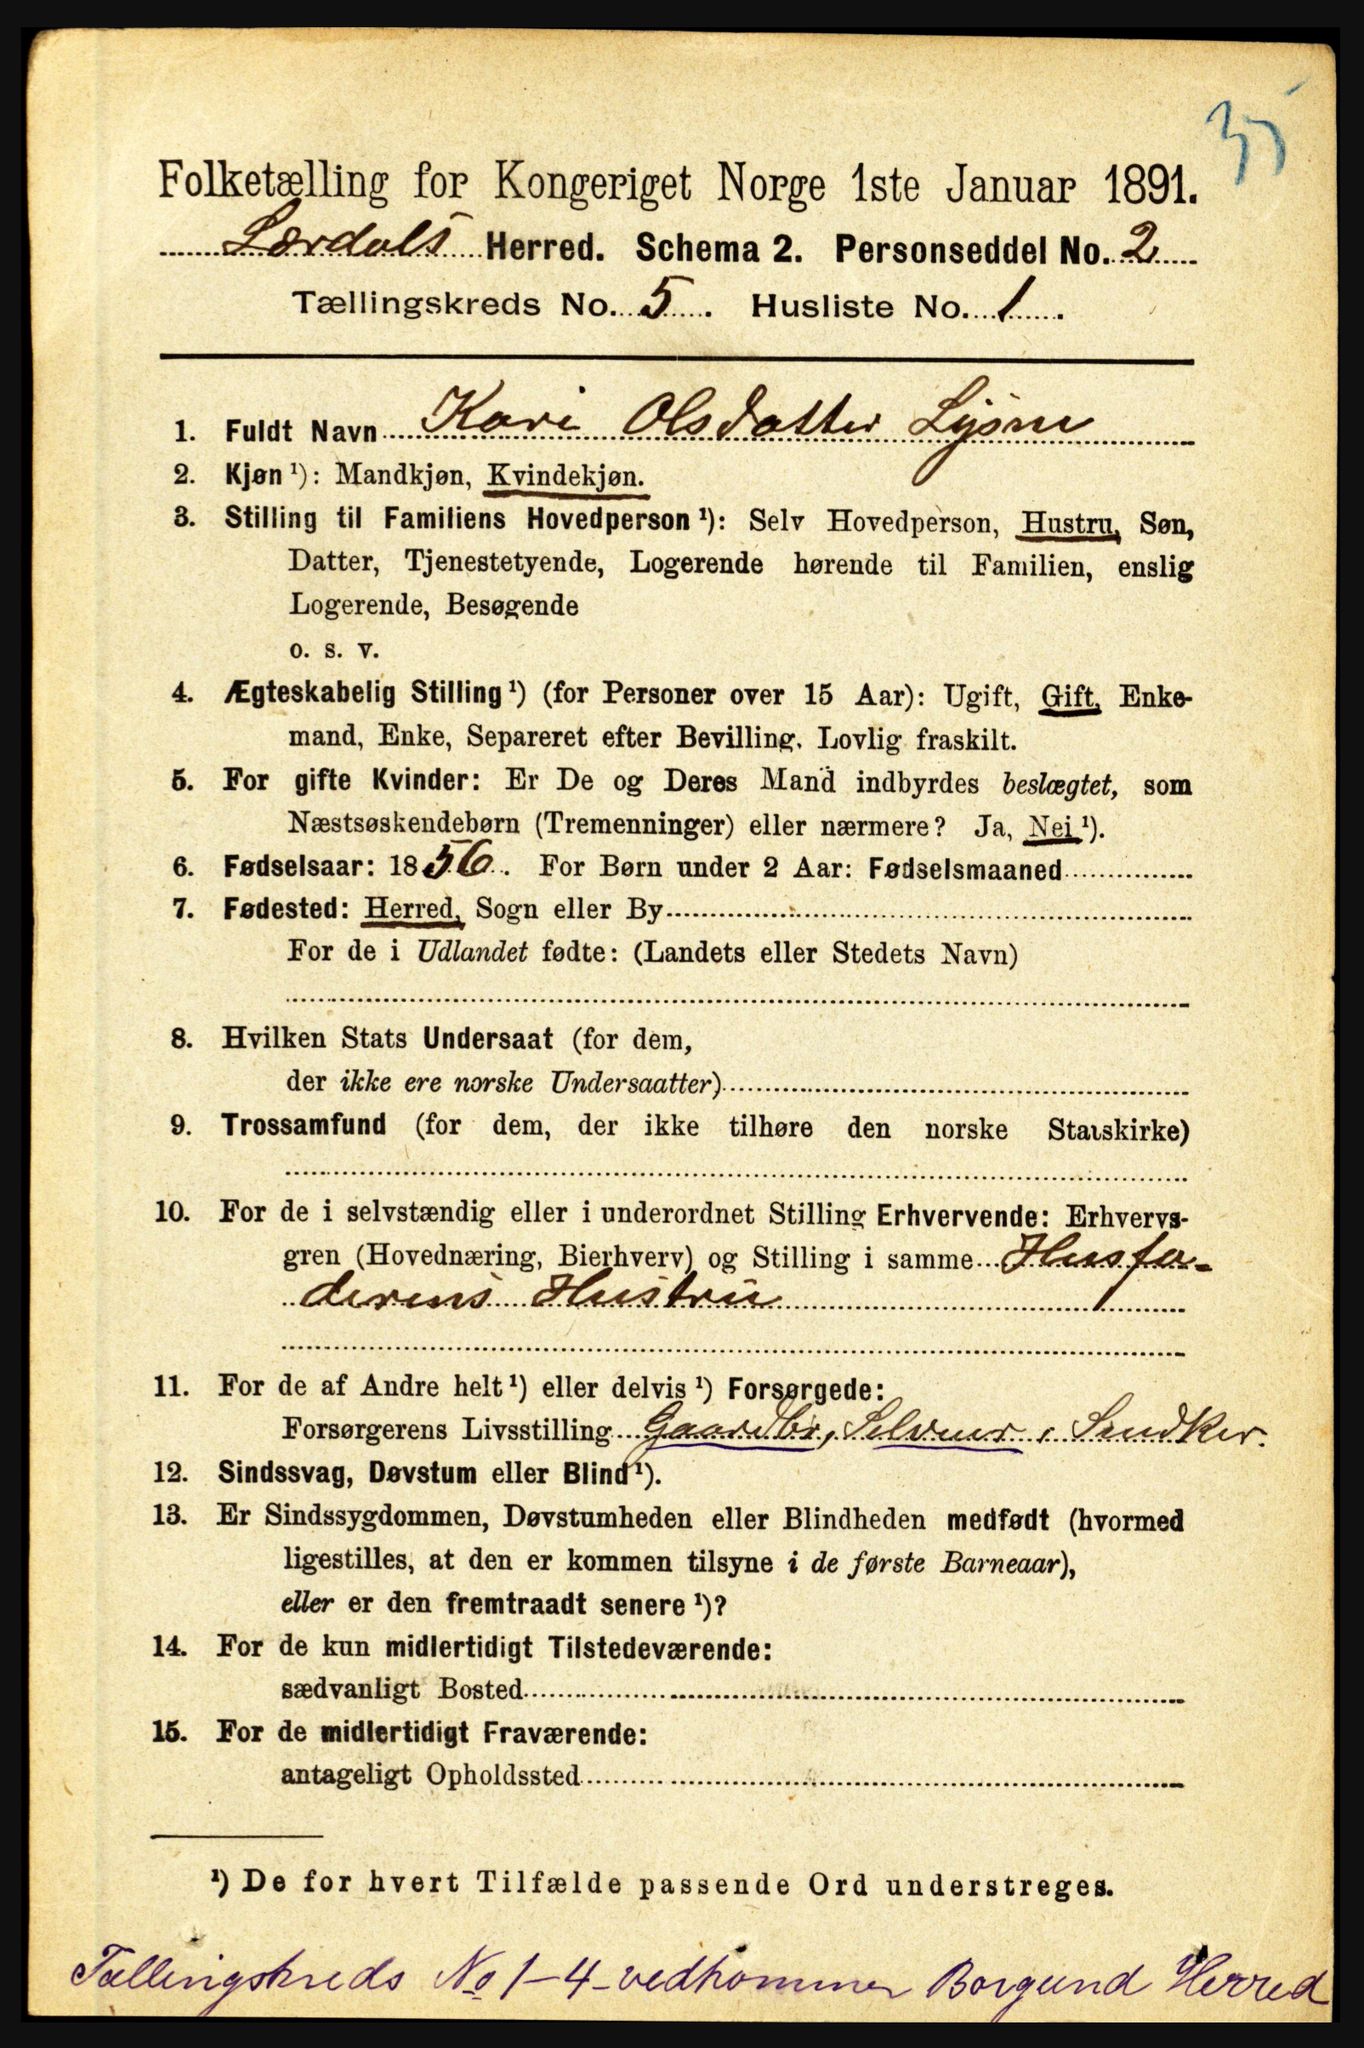 35
Folketælling for Kongeriget Norge 1ste Januar 1891.
Lærdals Herred. Schema 2. Personseddel No. 2
Tællingskreds No. 5. Husliste No. 1.
1. Fuldt Navn Kari Olsdatter Lysne
2. Kjøn ¹): Mandkjøn, Kvindekjøn.
3. Stilling til Familiens Hovedperson ¹): Selv Hovedperson, Hustru, Søn,
Datter, Tjenestetyende, Logerende hørende til Familien, enslig
Logerende, Besøgende
o. s. v.
4. Ægteskabelig Stilling ¹) (for Personer over 15 Aar): Ugift, Gift, Enke-
mand, Enke, Separeret efter Bevilling, Lovlig fraskilt.
5. For gifte Kvinder: Er De og Deres Mand indbyrdes beslægtet, som
Næstsøskendebørn (Tremenninger) eller nærmere? Ja, Nei ¹).
6. Fødselsaar: 1856. For Børn under 2 Aar: Fødselsmaaned
7. Fødested: Herred, Sogn eller By
For de i Udlandet fødte: (Landets eller Stedets Navn)
8. Hvilken Stats Undersaat (for dem,
der ikke ere norske Undersaatter)
9. Trossamfund (for dem, der ikke tilhøre den norske Statskirke)
10. For de i selvstændig eller i underordnet Stilling Erhvervende: Erhvervs-
gren (Hovednæring, Bierhverv) og Stilling i samme Husfa-
derens Hustru
11. For de af Andre helt ¹) eller delvis ¹) Forsørgede:
Forsørgerens Livsstilling Gaardbr, Selveier, Snedker.
12. Sindssvag, Døvstum eller Blind ¹).
13. Er Sindssygdommen, Døvstumheden eller Blindheden medfødt (hvormed
ligestilles, at den er kommen tilsyne i de første Barneaar),
eller er den fremtraadt senere ¹)?
14. For de kun midlertidigt Tilstedeværende:
sædvanligt Bosted
15. For de midlertidigt Fraværende:
antageligt Opholdssted
¹) De for hvert Tilfælde passende Ord understreges.
Tællingskreds No 1-4 vedkommer Borgund Herred